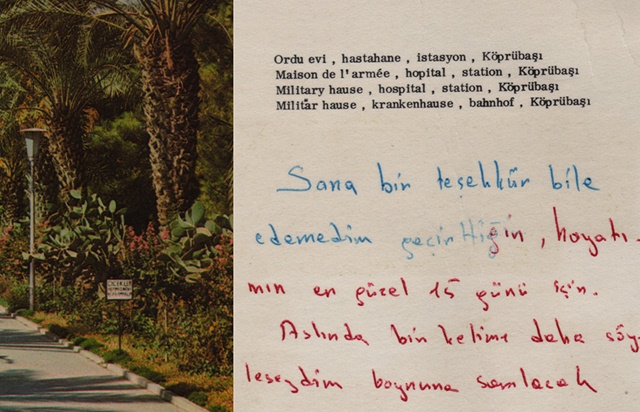 Ordu evi , hastahane , istasyon , Köprübaşı
Maison de l'armée , hopital , station , Köprübaşı
Military hause , hospital , station , Köprübaşı
Militär hause , krankenhause , bahnhof , Köprübaşı
Sana bir teşekkür bile
edemedim geçirttiğin , hayatı-
mın en güzel 15 günü için.
Aslında bir kelime daha söy-
leseydim boynuna sarılacak